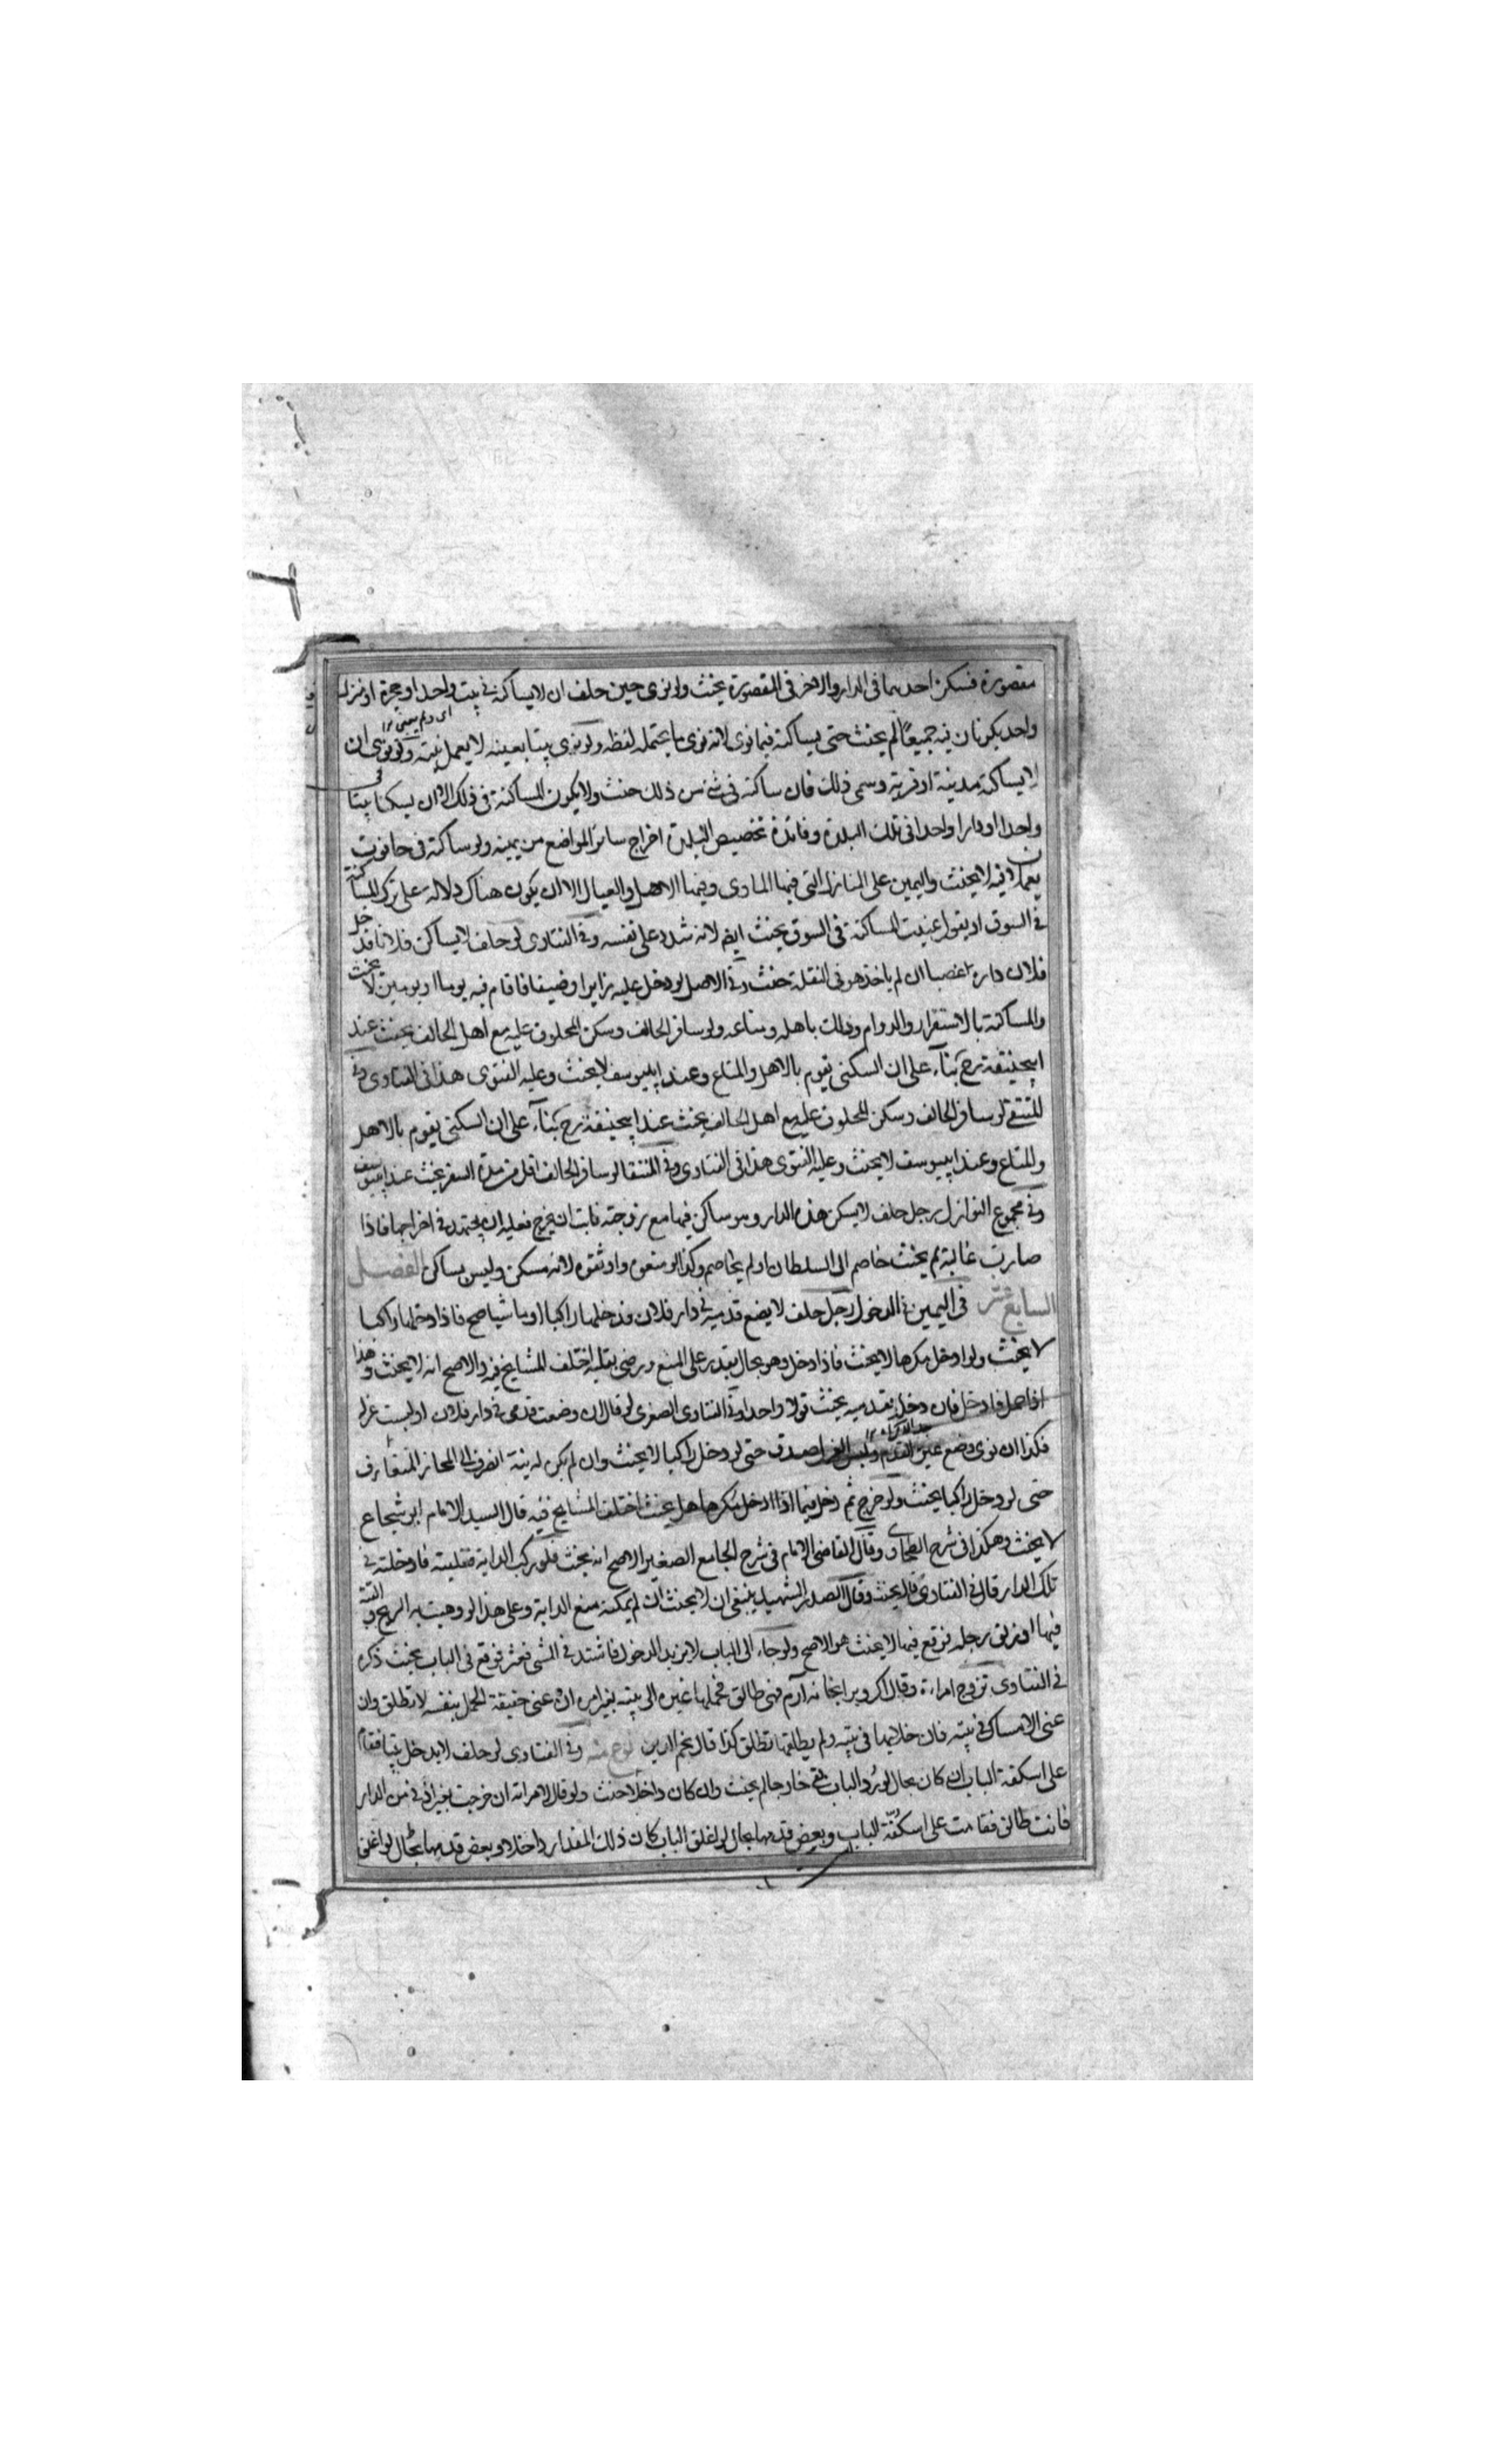 مقصورة فسكن احدهما فى الدار والاخر فى المقصورة يحنث ولو نوى حين حلف ان لا يساكنه فى بيت واحد او حجرة او منزل
واحد يكونان فيه جميعًا لم يحنث حتى يساكنه فيما نوى لانه نوى ما يحتمله لفظه ولو نوى بيتا بعينه لا يعمل نيته ولو نوى ان
لا يساكنه بمدينة او قرية وسمى ذلك فان ساكنه فى شئ من ذلك حنث ولا يكون المساكنة فى ذلك الا ان يسكنا بيتا
واحدا او دارا واحدا فى تلك البلدة وفائدة تخصيص البلدة اخراج سائر المواضع من يمينه ولو ساكنه فى حانوت
يعملان فيه لا يحنث واليمين على المنازل التى فيها الماوى وفيها الاهل والعيال الا ان يكون هناك دلالة على ترك المساكنة
فى السوق او يقول عنيت المساكنة فى السوق يحنث ايضا لانه شدد على نفسه وفى الفتاوى لو حلف لا يساكن فلانا فدخل
فلان داره غصبا ان لم ياخذ هو فى النقلة حنث وفى الاصل لو دخل عليه زايرا او ضيفا فاقام فيه يوما او يومين لا يحنث
والمساكنة بالاستقرار والدوام وذلك باهله ومتاعه ولو سافر الحالف وسكن المحلوف عليه مع اهل الحالف يحنث عند
ابيحنيفة رح بناء على ان السكنى يقوم بالاهل والمتاع وعند ابييوسف لا يحنث وعليه الفتوى هذا فى الفتاوى وفى
المنتقى لو سافر الحالف وسكن المحلوف عليه مع اهل الحالف يحنث عند ابيحنيفة رح بناء على ان السكنى يقوم بالاهل
والمتاع وعند ابييوسف لا يحنث وعليه الفتوى هذا فى الفتاوى وفى المنتقا لو سافر الحالف اقل من مدة السفر يحنث عند ابييوسف
وفى مجموع النوازل رجل حلف لا يسكن هذه الدار وهو ساكن فيها مع زوجته فابت ان يخرج فعليه ان يجتهد فى اخراجها فاذا
صارت غالبة لم يحنث خاصم الى السلطان او لم يخاصم وكذا لو منعوه واوثقوه لانه مسكن وليس بساكن الفصل
السابع عشر فى اليمين فى الدخول رجل حلف لا يضع قدميه فى دار فلان فدخلها راكبا او ماشيا صح فاذا دخلها راكبا
لا يحنث ولو ادخل مكرها لا يحنث فاذا دخل وهو بحال يقدر على المنع ورضى بقلبه اختلف المشايخ فيه والاصح انه لا يحنث وهذا
اذا حمل فادخل فان دخل بقدميه يحنث قولا واحدا وفى الفتاوى الصغرى لو قال ان وضعت قدمى فى دار فلان او لبست غزل
فكذا ان نوى وضع عين القدم ولبس الغزل صدق حتى لو دخل راكبا لا يحنث وان لم يكن له نية انصرف الى المجاز المتعارف
حتى لو دخل راكبا يحنث ولو خرج ثم دخل فيما اذا ادخل مكرها هل يحنث اختلف المشايخ فيه قال السيد الامام ابو شجاع
لا يحنث وهكذا فى شرح الطحاوى وقال القاضى الامام فى شرح الجامع الصغير الاصح انه يحنث فلو ركب الدابة فغلبته فادخلته فى
تلك الدار قال فى الفتاوى يحنث وقال الصدر الشهيد ينبغى ان لا يحنث ان لم يمكنه منع الدابة وعلى هذا لو وهبت به الريح و
فيها او زلق رجله فوقع فيها لا يحنث هو الاصح ولو جاء الى الباب لا يريد الدخول فاشتد فى المشى فعثر فوقع فى الباب يحنث ذكره
فى الفتاوى تزوج امراءة وقال اكر ويرا بخانه آرم فهى طالق فحملها غيره الى بيته بغير امره ان عنى حقيقة الحمل بنفسه لا تطلق وان
عنى الامساك فى بيته فان خلا بها فى بيته ولم يطلقها تطلق كذا قال نجم الدين وفى الفتاوى لو حلف لا يدخل بيتا فقام
على اسكفة الباب ان كان بحال لو رُد الباب بقى خارجا لم يحنث وان كان داخلا حنث ولو قال لامراته ان خرجت بغير اذنى من الدار
فانت طالق فقامت على اسكفّة الباب وبعض قدمها بحال لو اغلق الباب كان ذلك المقدار داخلا وبعض قدمها بحال لو اغلق